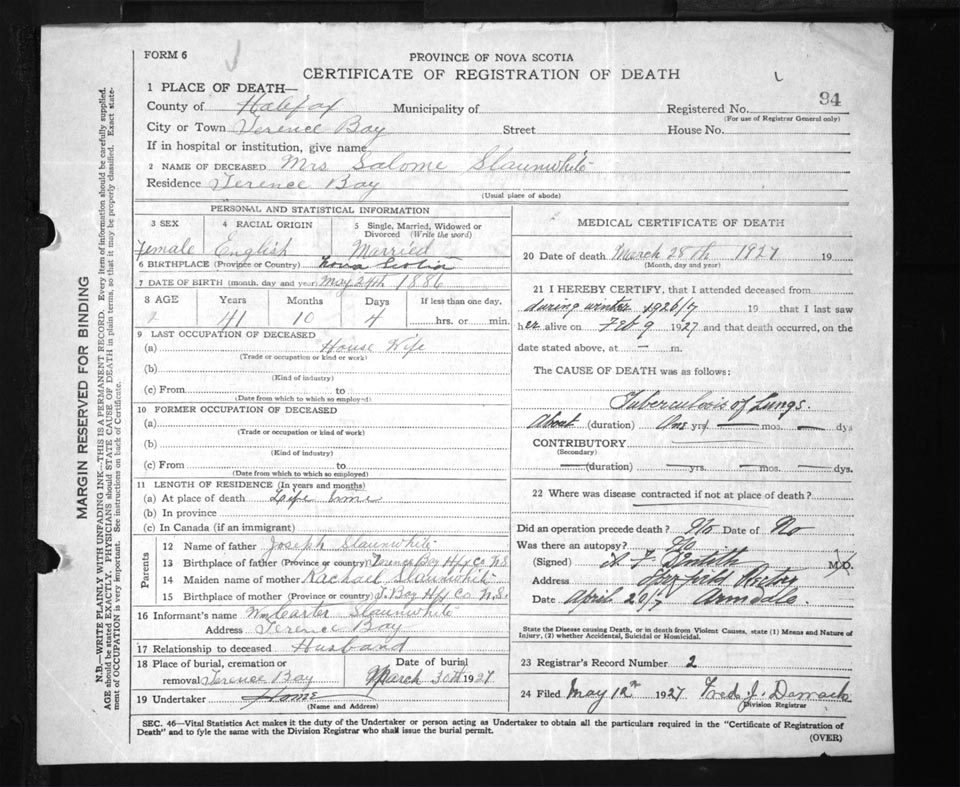 FORM 6
PROVINCE OF NOVA SCOTIA
CERTIFICATE OF REGISTRATION OF DEATH
94
1 PLACE OF DEATH—
County of Halifax Municipality of Registered No.
(For use of Registrar General only)
City or Town Terence Bay Street House No.
If in hospital or institution, give name
2 NAME OF DECEASED Mrs Salome Slaunwhite
Residence Terence Bay
(Usual place of abode)
PERSONAL AND STATISTICAL INFORMATION
3 SEX 4 RACIAL ORIGIN 5 Single, Married, Widowed or Divorced (Write the word)
Female English Married
6 BIRTHPLACE (Province or Country) Nova Scotia
7 DATE OF BIRTH (month, day and year) May 24th 1886
8 AGE Years Months Days If less than one day,
41 10 4 hrs. or min.
9 LAST OCCUPATION OF DECEASED
(a) House Wife
(Trade or occupation or kind or work)
(b)
(Kind of industry)
(c) From to
(Date from which to which so employed)
10 FORMER OCCUPATION OF DECEASED
(a)
(Trade or occupation or kind of work)
(b)
(Kind of industry)
(c) From to
(Date from which to which so employed)
11 LENGTH OF RESIDENCE (In years and months)
(a) At place of death Life time
(b) In province
(c) In Canada (if an immigrant)
Parents
12 Name of father Joseph Slaunwhite
13 Birthplace of father (Province or country) Terence Bay Hfx Co N.S
14 Maiden name of mother Rachael Slaunwhite
15 Birthplace of mother (Province or country) T. Bay Hfx Co N.S.
16 Informant's name Wm Carter Slaunwhite
Address Terence Bay
17 Relationship to deceased Husband
18 Place of burial, cremation or removal Terence Bay Date of burial March 30th 1927
19 Undertaker Home
(Name and Address)
MEDICAL CERTIFICATE OF DEATH
20 Date of death March 28th 1927 19
(Month, day and year)
21 I HEREBY CERTIFY, that I attended deceased from
during winter 1926/7 19 that I last saw
her alive on Feb 9 1927 and that death occurred, on the
date stated above, at — m.
The CAUSE OF DEATH was as follows:
Tuberculosis of Lungs.
About (duration) One yrs. — mos. — dys
CONTRIBUTORY
(Secondary)
— (duration) — yrs. — mos. — dys.
22 Where was disease contracted if not at place of death?
Did an operation precede death? No Date of No
Was there an autopsy? No
(Signed) M.D.
Address
Date April 20/7 Armdale
State the Disease causing Death, or in death from Violent Causes, state (1) Means and Nature of
Injury, (2) whether Accidental, Suicidal or Homicidal.
23 Registrar's Record Number 2
24 Filed May 12th 1927 Fred J.
Division Registrar
SEC. 46—Vital Statistics Act makes it the duty of the Undertaker or person acting as Undertaker to obtain all the particulars required in the "Certificate of Registration of
Death" and to fyle the same with the Division Registrar who shall issue the burial permit.
(OVER)
MARGIN RESERVED FOR BINDING
N.B.—WRITE PLAINLY WITH UNFADING INK—THIS IS A PERMANENT RECORD. Every item of information should be carefully supplied.
AGE should be stated EXACTLY. PHYSICIANS should STATE CAUSE OF DEATH in plain terms, so that it may be properly classified. Exact state-
ment of OCCUPATION is very important. See instructions on back of Certificate.